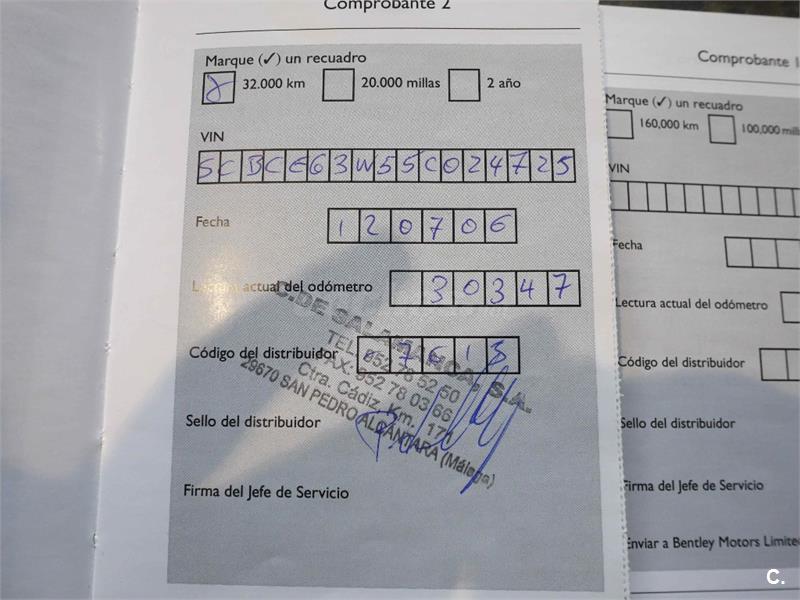 Comprobante 2
Marque (✓) un recuadro
32.000 km 20.000 millas 2 año
VIN
SCBCE63W55C024725
Fecha 120706
Lectura actual del odómetro 30347
Código del distribuidor 7613
C.DE SALAMANCA, S.A.
TEL. 952 78 52 50
FAX: 952 78 03 66
Ctra. Cádiz, Km. 171
29670 SAN PEDRO ALCÁNTARA (Málaga)
Sello del distribuidor
Firma del Jefe de Servicio
Comprobante 1
Marque (✓) un recuadro
160,000 km 100,000 milla
VIN
Fecha
Lectura actual del odómetro
Código del distribuidor
Sello del distribuidor
Firma del Jefe de Servicio
Enviar a Bentley Motors Limite
C.